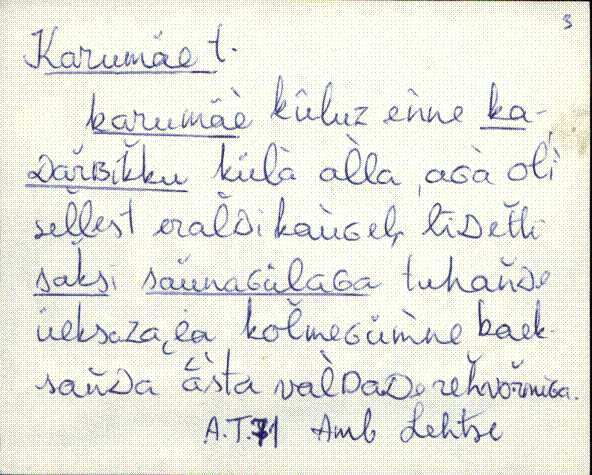 3
Karumäe t.
karumäè kǜluz eǹne ka-
DäřBiǩku külà al̀la, aGà olì
sel̀lest eral̆Di kaùGel, līDeťti
saǩsi saǔnaGülaGa tuhaňDe
üeksaZa ja kol̆meGüm̀ne kaek-
saňDa āsta val̀DaDe rehvořmiGa.
A.T. 71 Amb Lehtse